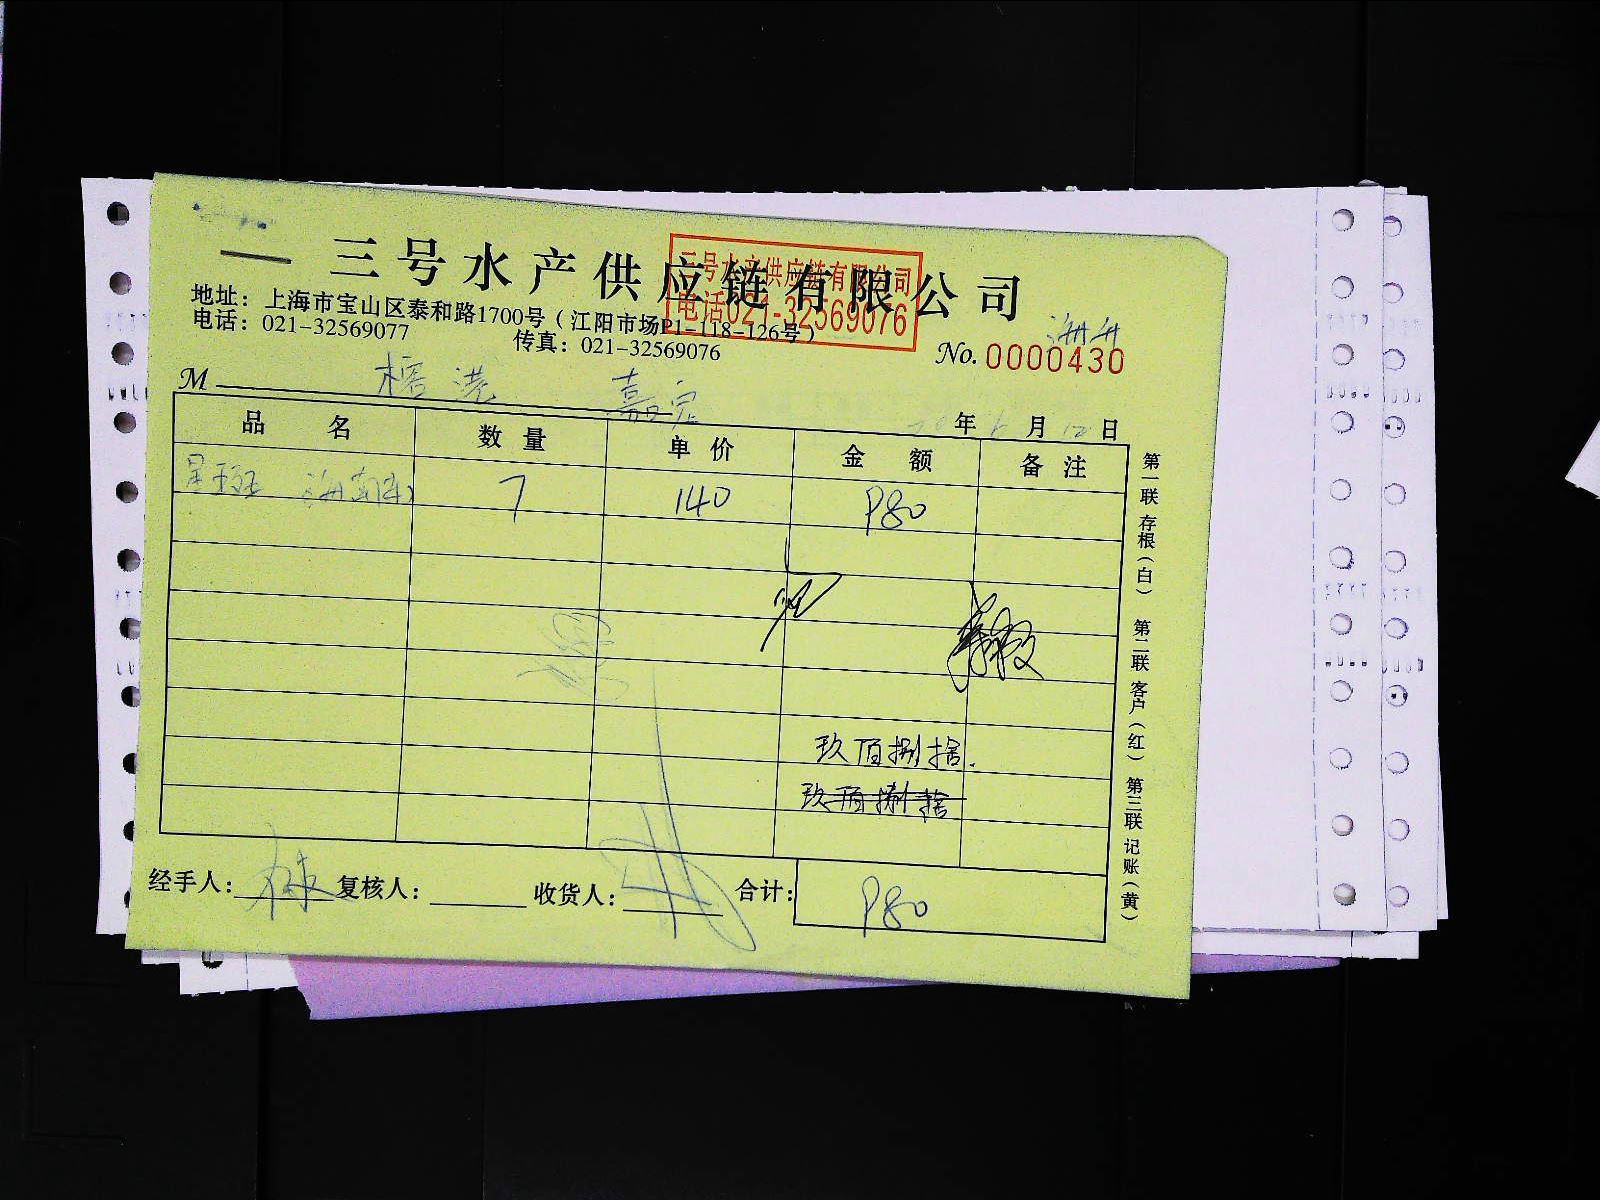 三号水产供应链有限公司
三号水产供应链有限公司
电话021-32569076
地址：上海市宝山区泰和路1700号（江阳市场P1-118-126号）
电话：021-32569077 传真：021-32569076
No. 0000430
M 榕港 嘉定
年 月 12 日
品名 数量 单价 金额 备注
星斑 7 140 980
玖佰捌拾.
玖佰捌拾
经手人： 复核人： 收货人： 合计： 980
第一联 存根（白） 第二联 客户（红） 第三联 记账（黄）